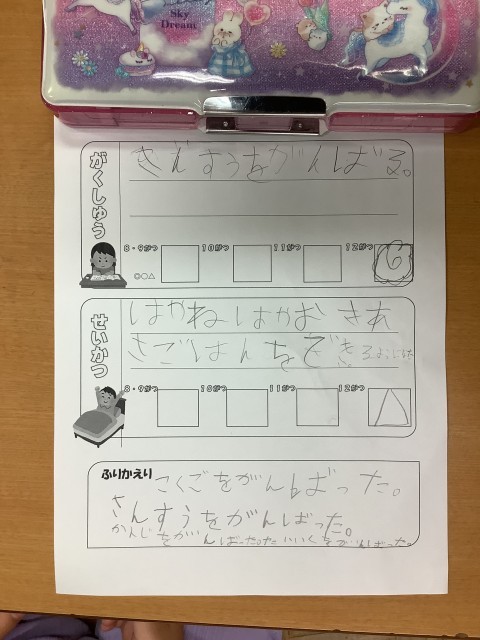 Sky
Dream
がくしゅう
さんすうをがんばる。
8・9がつ 10がつ 11がつ 12がつ
◎○△
せいかつ
はやねはやお きあ
さごはんを
8・9がつ 10がつ 11がつ 12がつ
△
ふりかえり
こくごをがんばった。
さんすうをがんばった。
かんじをがんばった。たいいくをがんばった。